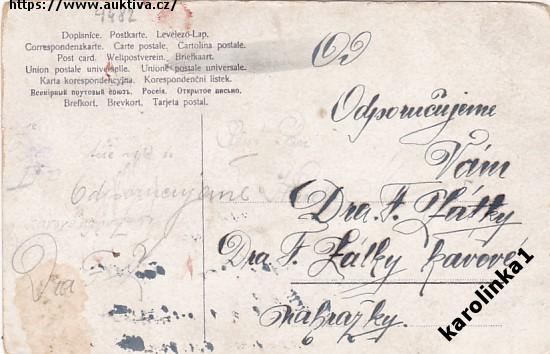 https://www.auktiva.cz/
4482
Dopisnice. Postkarte. Levelező-Lap.
Correspondenzkarte. Carte postale. Cartolina postale.
Post card. Weltpostverein. Briefkaart.
Union postale universelle. Unione postale universale.
Karta korespondencyjna. Korespondenční lístek.
Всемірный почтовый союзъ. Россія. Открытое письмо.
Brefkort. Brevkort. Tarjeta postal.
Odporučujeme
Vám
Dra. F. Zátky
Dra. F. Zátky kavové
náhražky.
Odporucujeme
Dra
karolinka1